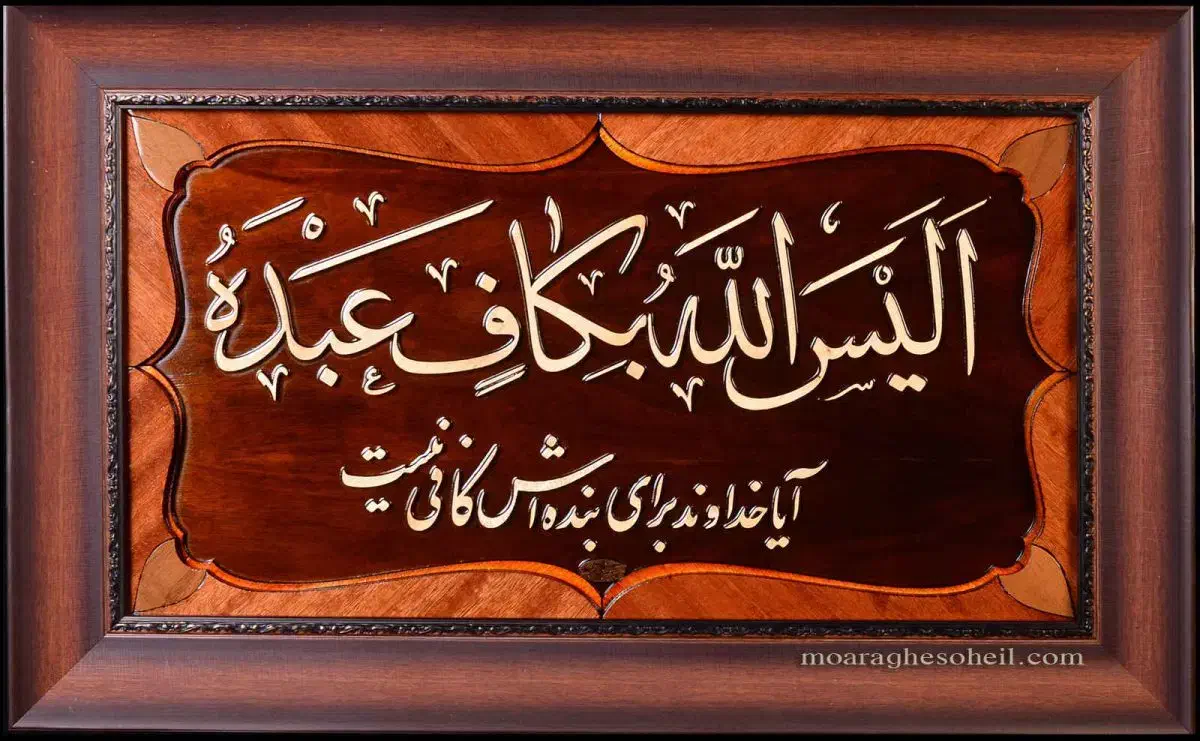 اَلَیْسَ اللّٰهُ بِکَافٍ عَبْدَهُ
آیا خداوند برای بنده‌اش کافی نیست
moaraghesoheil.com